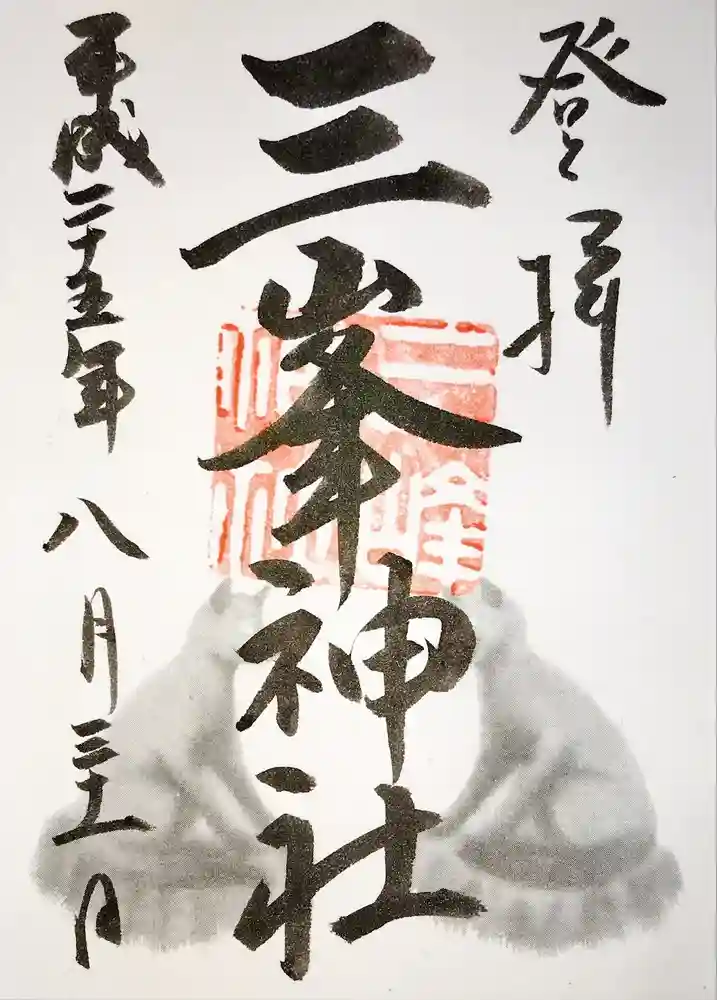 登拝
三峯神社
平成二十五年 八月三十一日